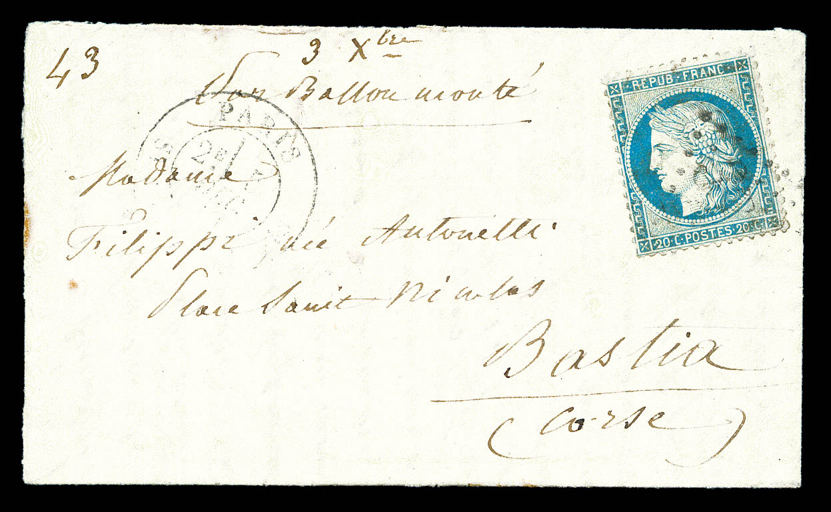 43
3 Xbre
Par Ballon monté
PARIS
2E
Madame
Filippi née Antonelli
Place Saint Nicolas
Bastia
(Corse)
REPUB·FRANC·
20·C·POSTES·20·C·